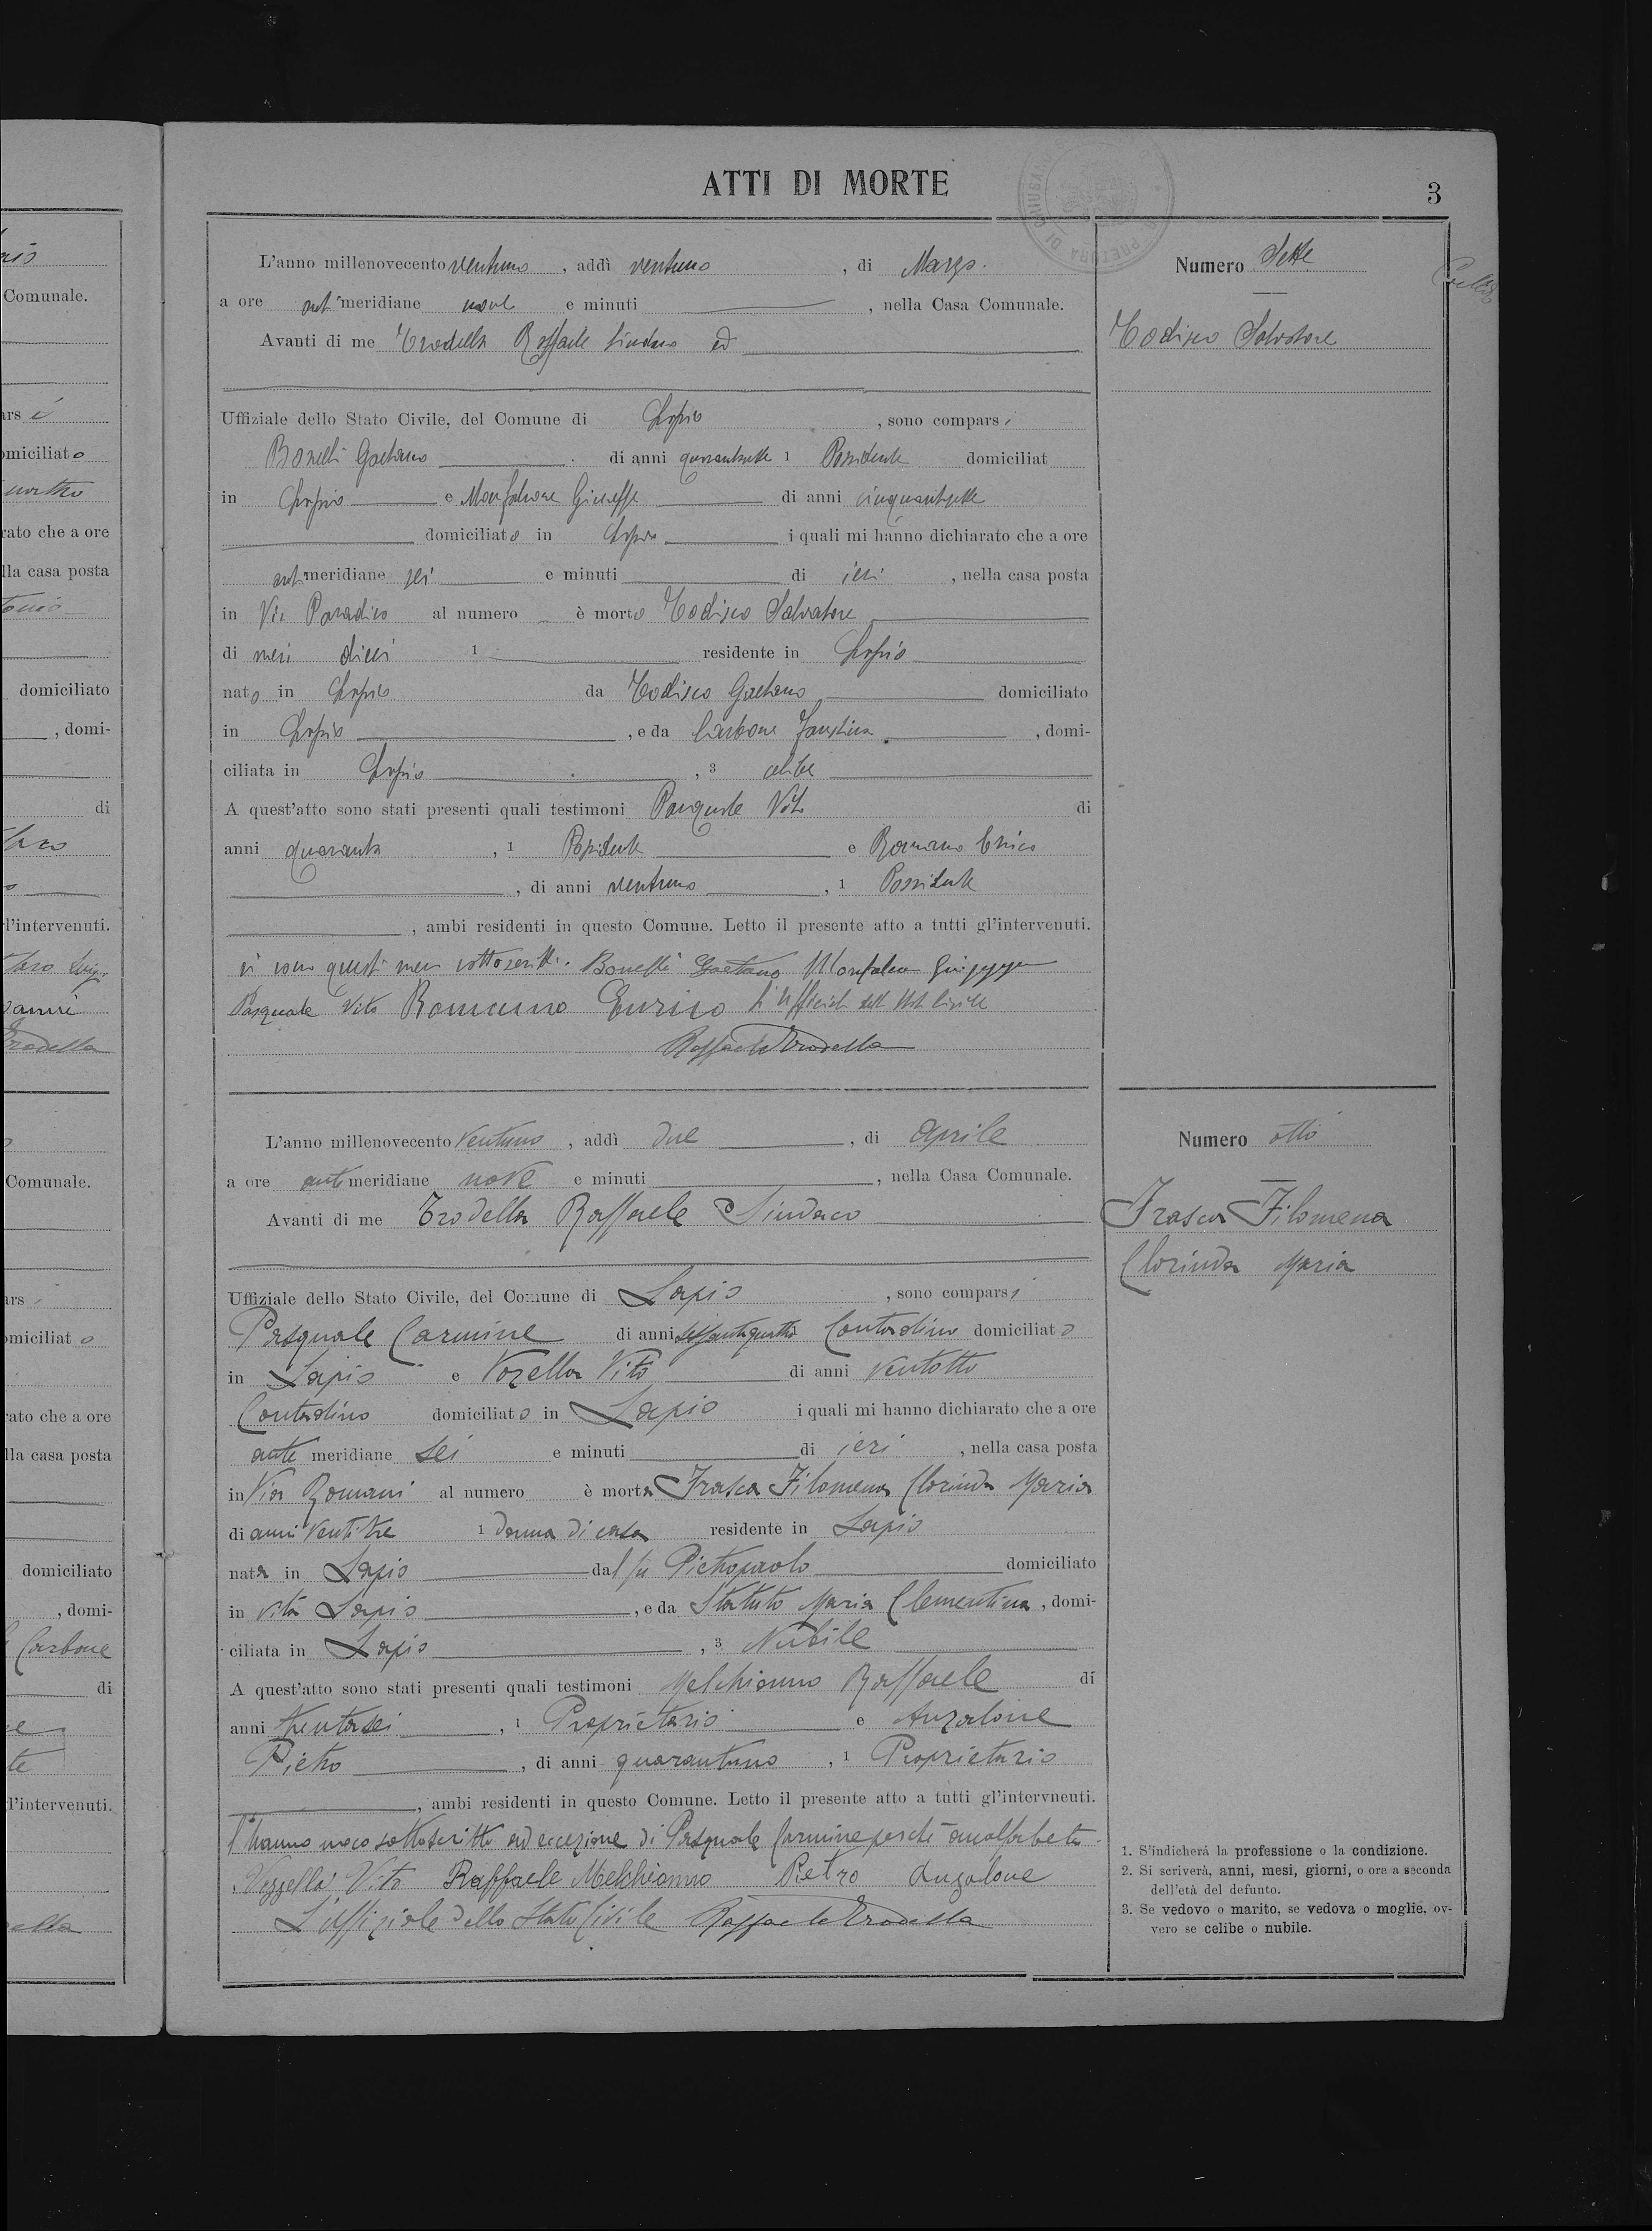 ATTI DI MORTE
3
PRETURA DI CHIUSANO
Numero Sette
Todisco Salvatore
L'anno millenovecento ventuno, addì ventuno, di Marzo.
a ore antimeridiane nove e minuti, nella Casa Comunale.
Avanti di me Trodella Raffaele Sindaco ed
Uffiziale dello Stato Civile, del Comune di Lapio, sono comparsi
Bonelli Gaetano di anni quarantasette 1 Possidente domiciliat
in Lapio e Monfalcone Giuseppe di anni cinquantasette
domiciliato in Lapio i quali mi hanno dichiarato che a ore
antimeridiane sei e minuti di ieri, nella casa posta
in Via Paradiso al numero è morto Todisco Salvatore
di mesi dieci 1 residente in Lapio
nato in Lapio da Todisco Gaetano domiciliato
in Lapio, e da Carbone Faustina, domi-
ciliata in Lapio, 3 celibe
A quest'atto sono stati presenti quali testimoni Pasquale Vito di
anni quaranta, 1 Possidente e Romano Enrico
, di anni ventuno, 1 Possidente
, ambi residenti in questo Comune. Letto il presente atto a tutti gl'intervenuti.
si sono questi meco sottoscritti. Bonelli Gaetano Monfalcone Giuseppe
Pasquale Vito Romano Enrico L'Ufficiale dello Stato Civile
Raffaele Trodella
Numero otto
Frasca Filomena
Clorinda Maria
L'anno millenovecento ventuno, addì due, di Aprile
a ore antimeridiane nove e minuti, nella Casa Comunale.
Avanti di me Trodella Raffaele Sindaco
Uffiziale dello Stato Civile, del Comune di Lapio, sono comparsi
Pasquale Carmine di anni sessantaquattro Contadino domiciliato
in Lapio e Vozella Vito di anni ventotto
Contadino domiciliato in Lapio i quali mi hanno dichiarato che a ore
ante meridiane sei e minuti di ieri, nella casa posta
in Via Romani al numero è morta Frasca Filomena Clorinda Maria
di anni ventitre 1 donna di casa residente in Lapio
nata in Lapio dal fu Pietropaolo domiciliato
in vita Lapio, e da Statuto Maria Clementina, domi-
ciliata in Lapio, 3 Nubile
A quest'atto sono stati presenti quali testimoni Melchionno Raffaele di
anni trentasei, 1 Proprietario e Anzalone
Pietro, di anni quarantuno, 1 Proprietario
, ambi residenti in questo Comune. Letto il presente atto a tutti gl'intervneuti.
l'hanno meco sottoscritto ad eccezione di Pasquale Carmine perché analfabeta.
Vozzella Vito Raffaele Melchionno Pietro Anzalone
L'Uffiziale dello Stato Civile Raffaele Trodella
1. S'indicherá la professione o la condizione.
2. Si scriverà, anni, mesi, giorni, o ore a seconda
dell'età del defunto.
3. Se vedovo o marito, se vedova o moglie, ov-
vero se celibe o nubile.